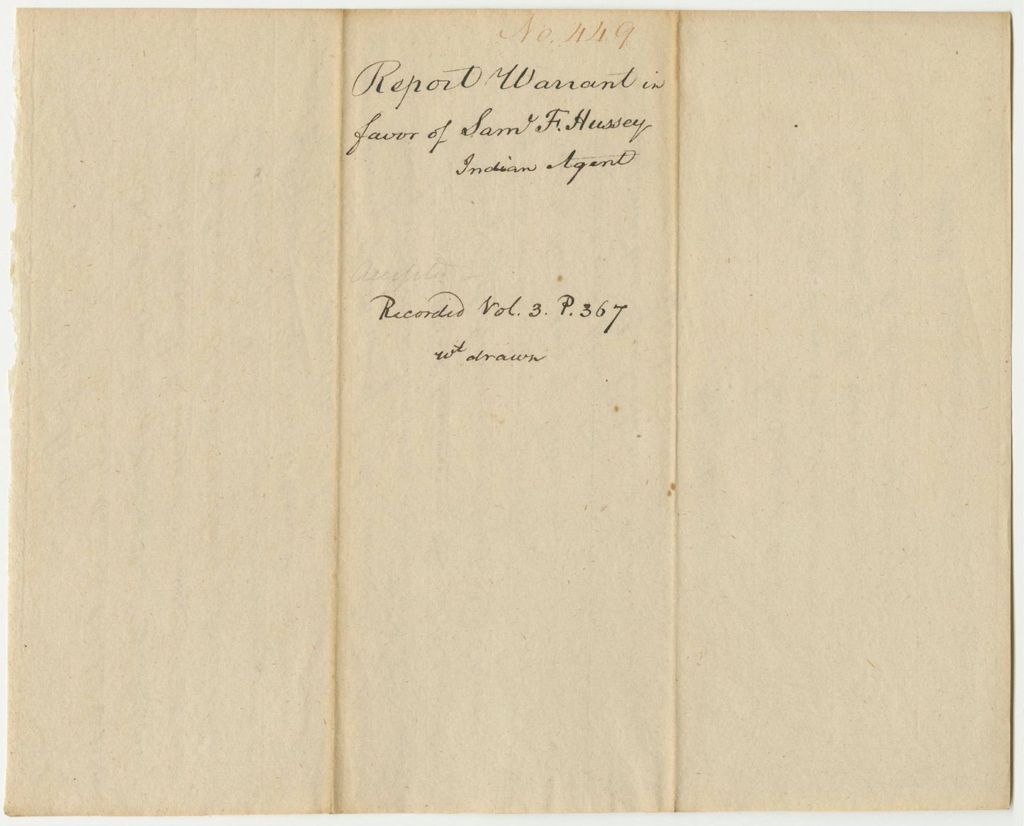 No. 449
Report Warrant in
favor of Saml F. Hussey
Indian Agent
Recorded Vol. 3. P. 367
wt drawn